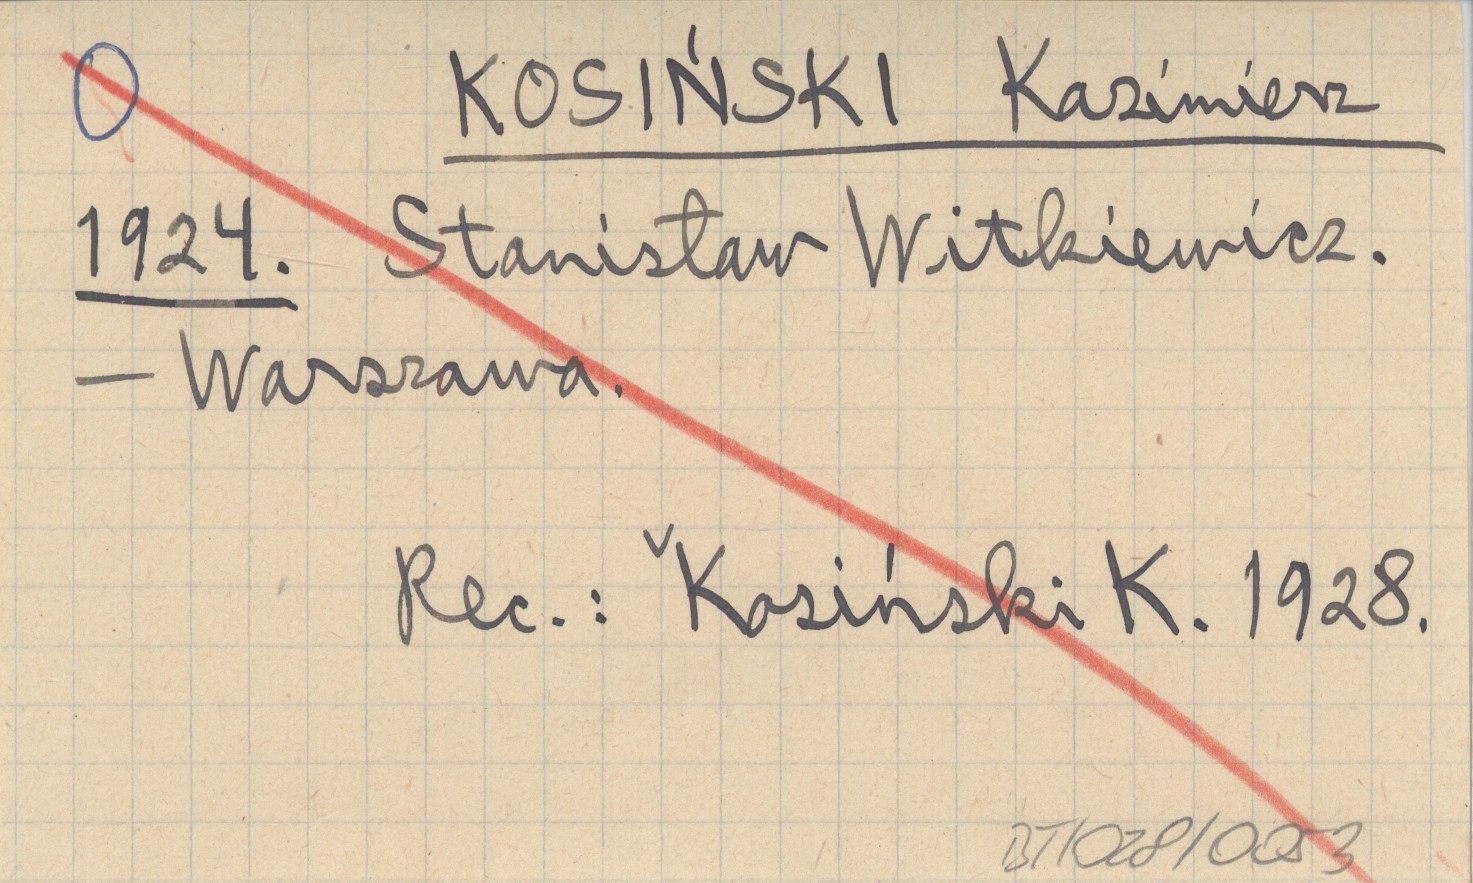 KOSIŃSKI Kazimierz
1924. Stanisław Witkiewicz.
— Warszawa.
Rec.: ˅Kosiński K. 1928.
BT/028/0053